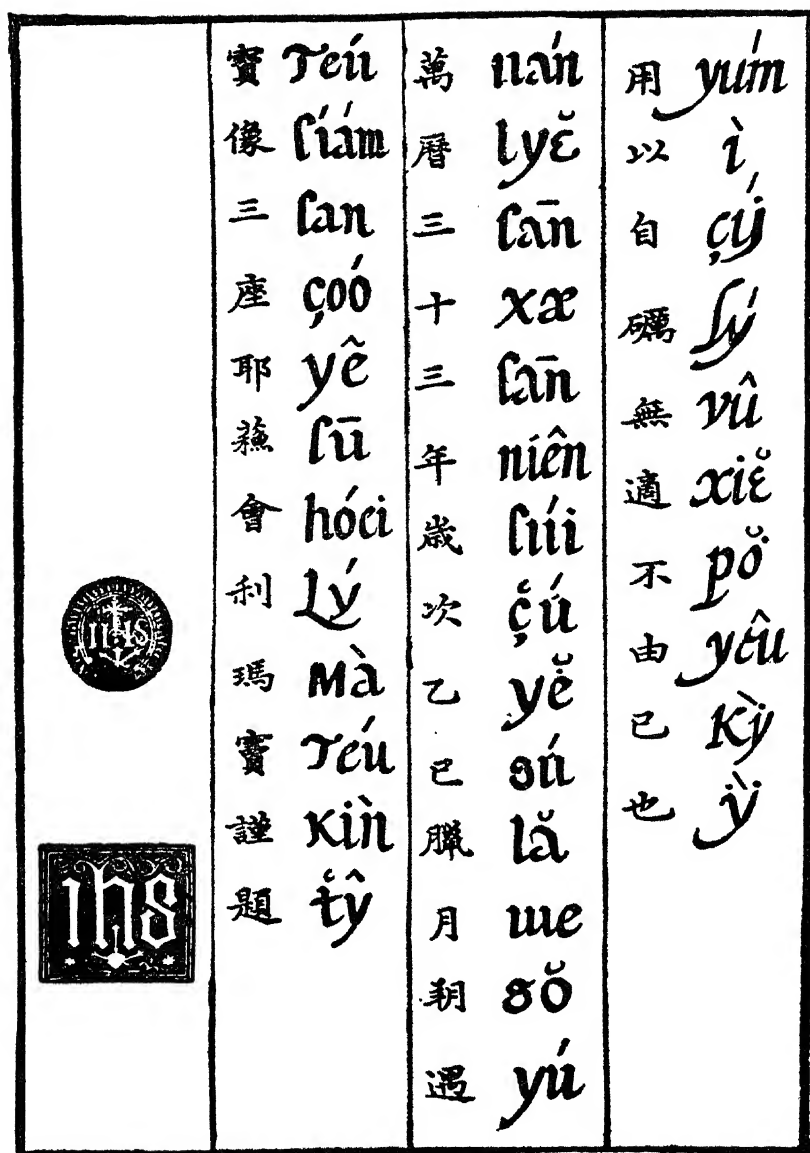 用 yúm 以 ì 自 çý 礪 ſý 無 vû 適 xiĕ 不 pŏ 由 yêu 已 Kỳ 也 ỳ
萬 uán 曆 lyĕ 三 ſān 十 xæ 三 ſān 年 niên 歲 ſúi 次 çú 乙 yĕ 巳 sú 臘 lă 月 iue 朔 sŏ 遇 yú
竇 Teú 像 ſiám 三 ſan 座 çoó 耶 yê 蘇 ſū 會 hóei 利 Lý 瑪 Mà 竇 Teú 謹 Kìn 題 tŷ
IHS
IHS